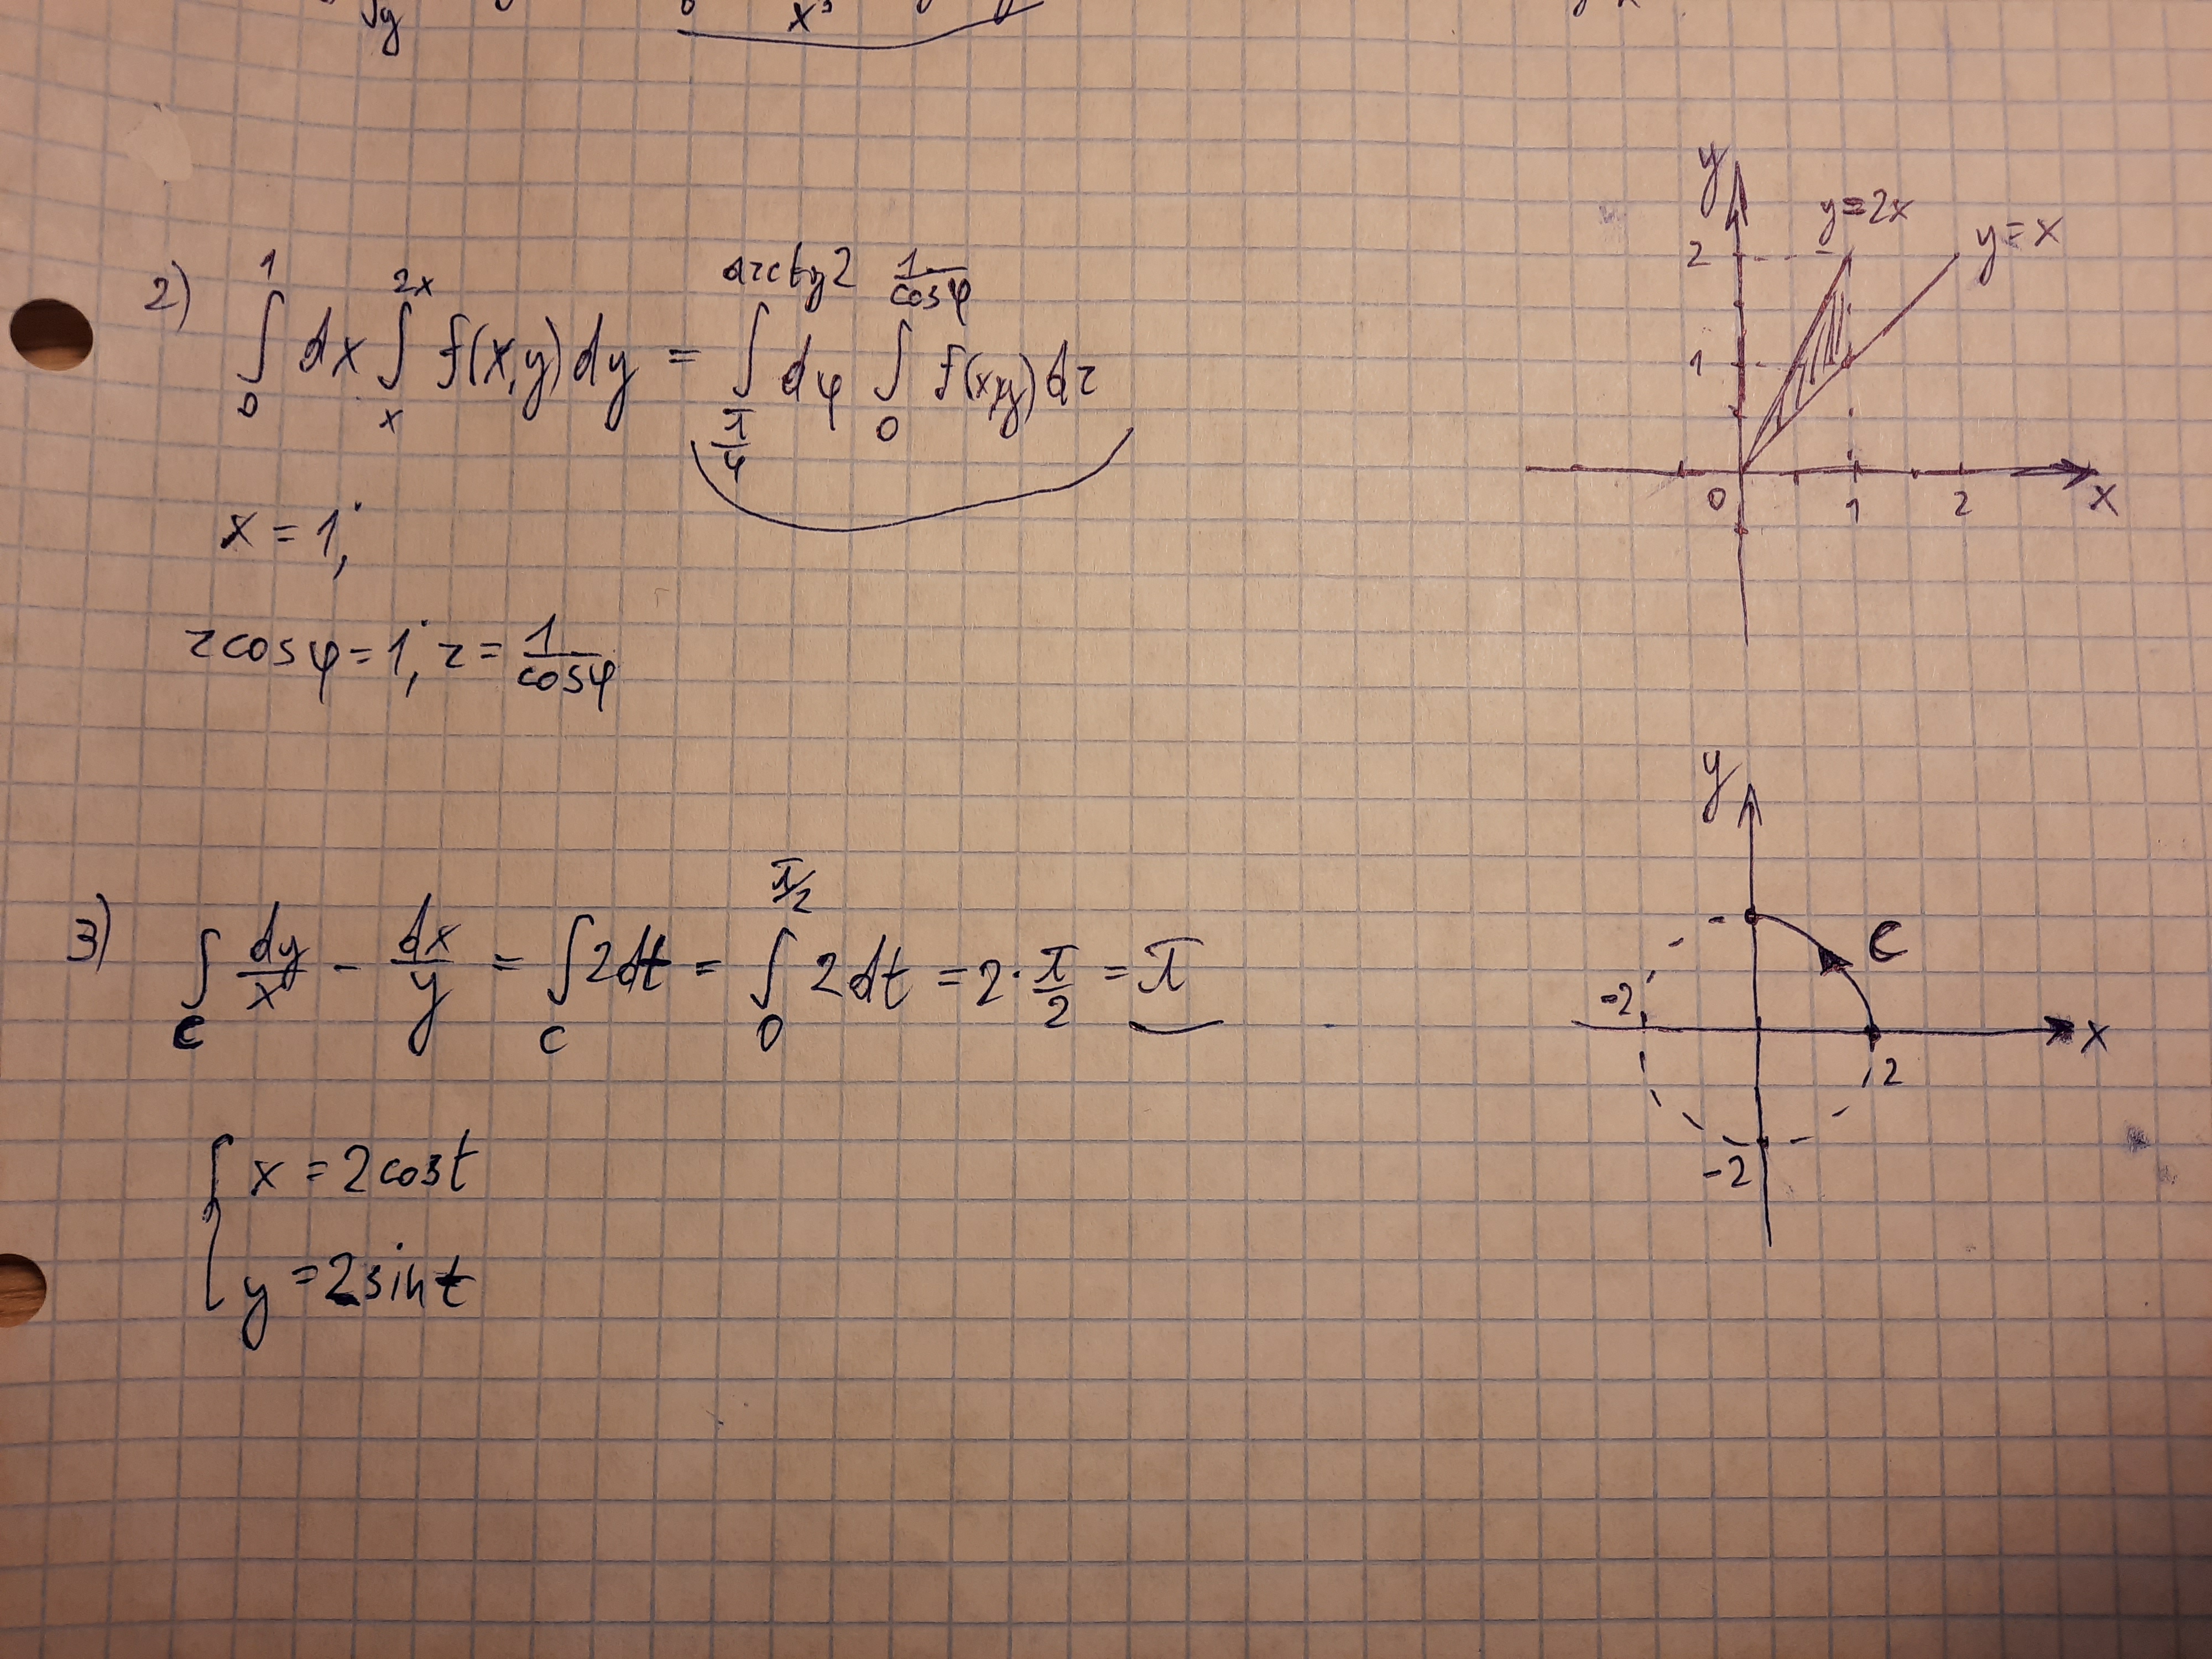 2) ∫₀¹ dx ∫ₓ²ˣ f(x,y)dy = ∫_{π/4}^{arctg2} dφ ∫₀^{1/cosφ} f(x,y)dr
x = 1;
rcosφ = 1; r = 1/cosφ
y
2
1
0
1
2
x
y=2x
y=x
3) ∫_C dy/x - dx/y = ∫_C 2dt = ∫₀^{π/2} 2dt = 2·π/2 = π
{ x = 2cost
y = 2sint
y
-2
C
2
x
-2